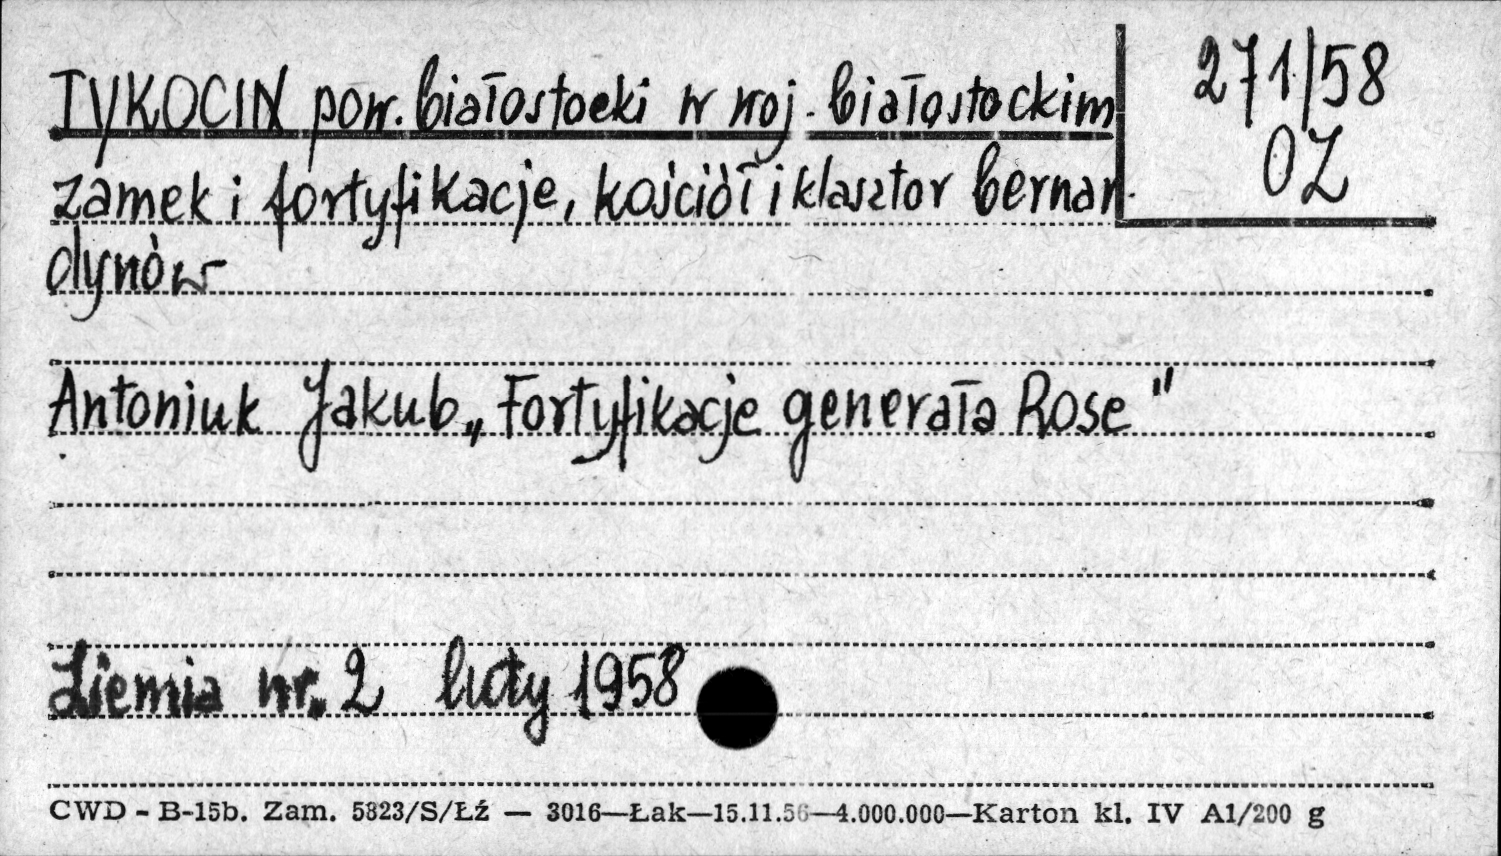 TYKOCIN pow. białostocki w woj. białostockim
271/58
OZ
zamek i fortyfikacje, kościół i klasztor bernar-
dynów
Antoniuk Jakub „Fortyfikacje generała Rose"
Ziemia nr. 2 luty 1958
CWD - B-15b. Zam. 5823/S/Łź — 3016—Łak—15.11.56—4.000.000—Karton kl. IV A1/200 g